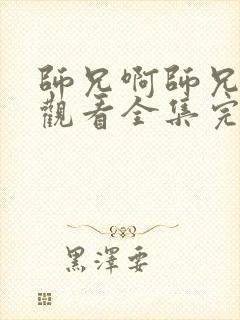 師兄啊師兄
觀看全集完
黑澤要